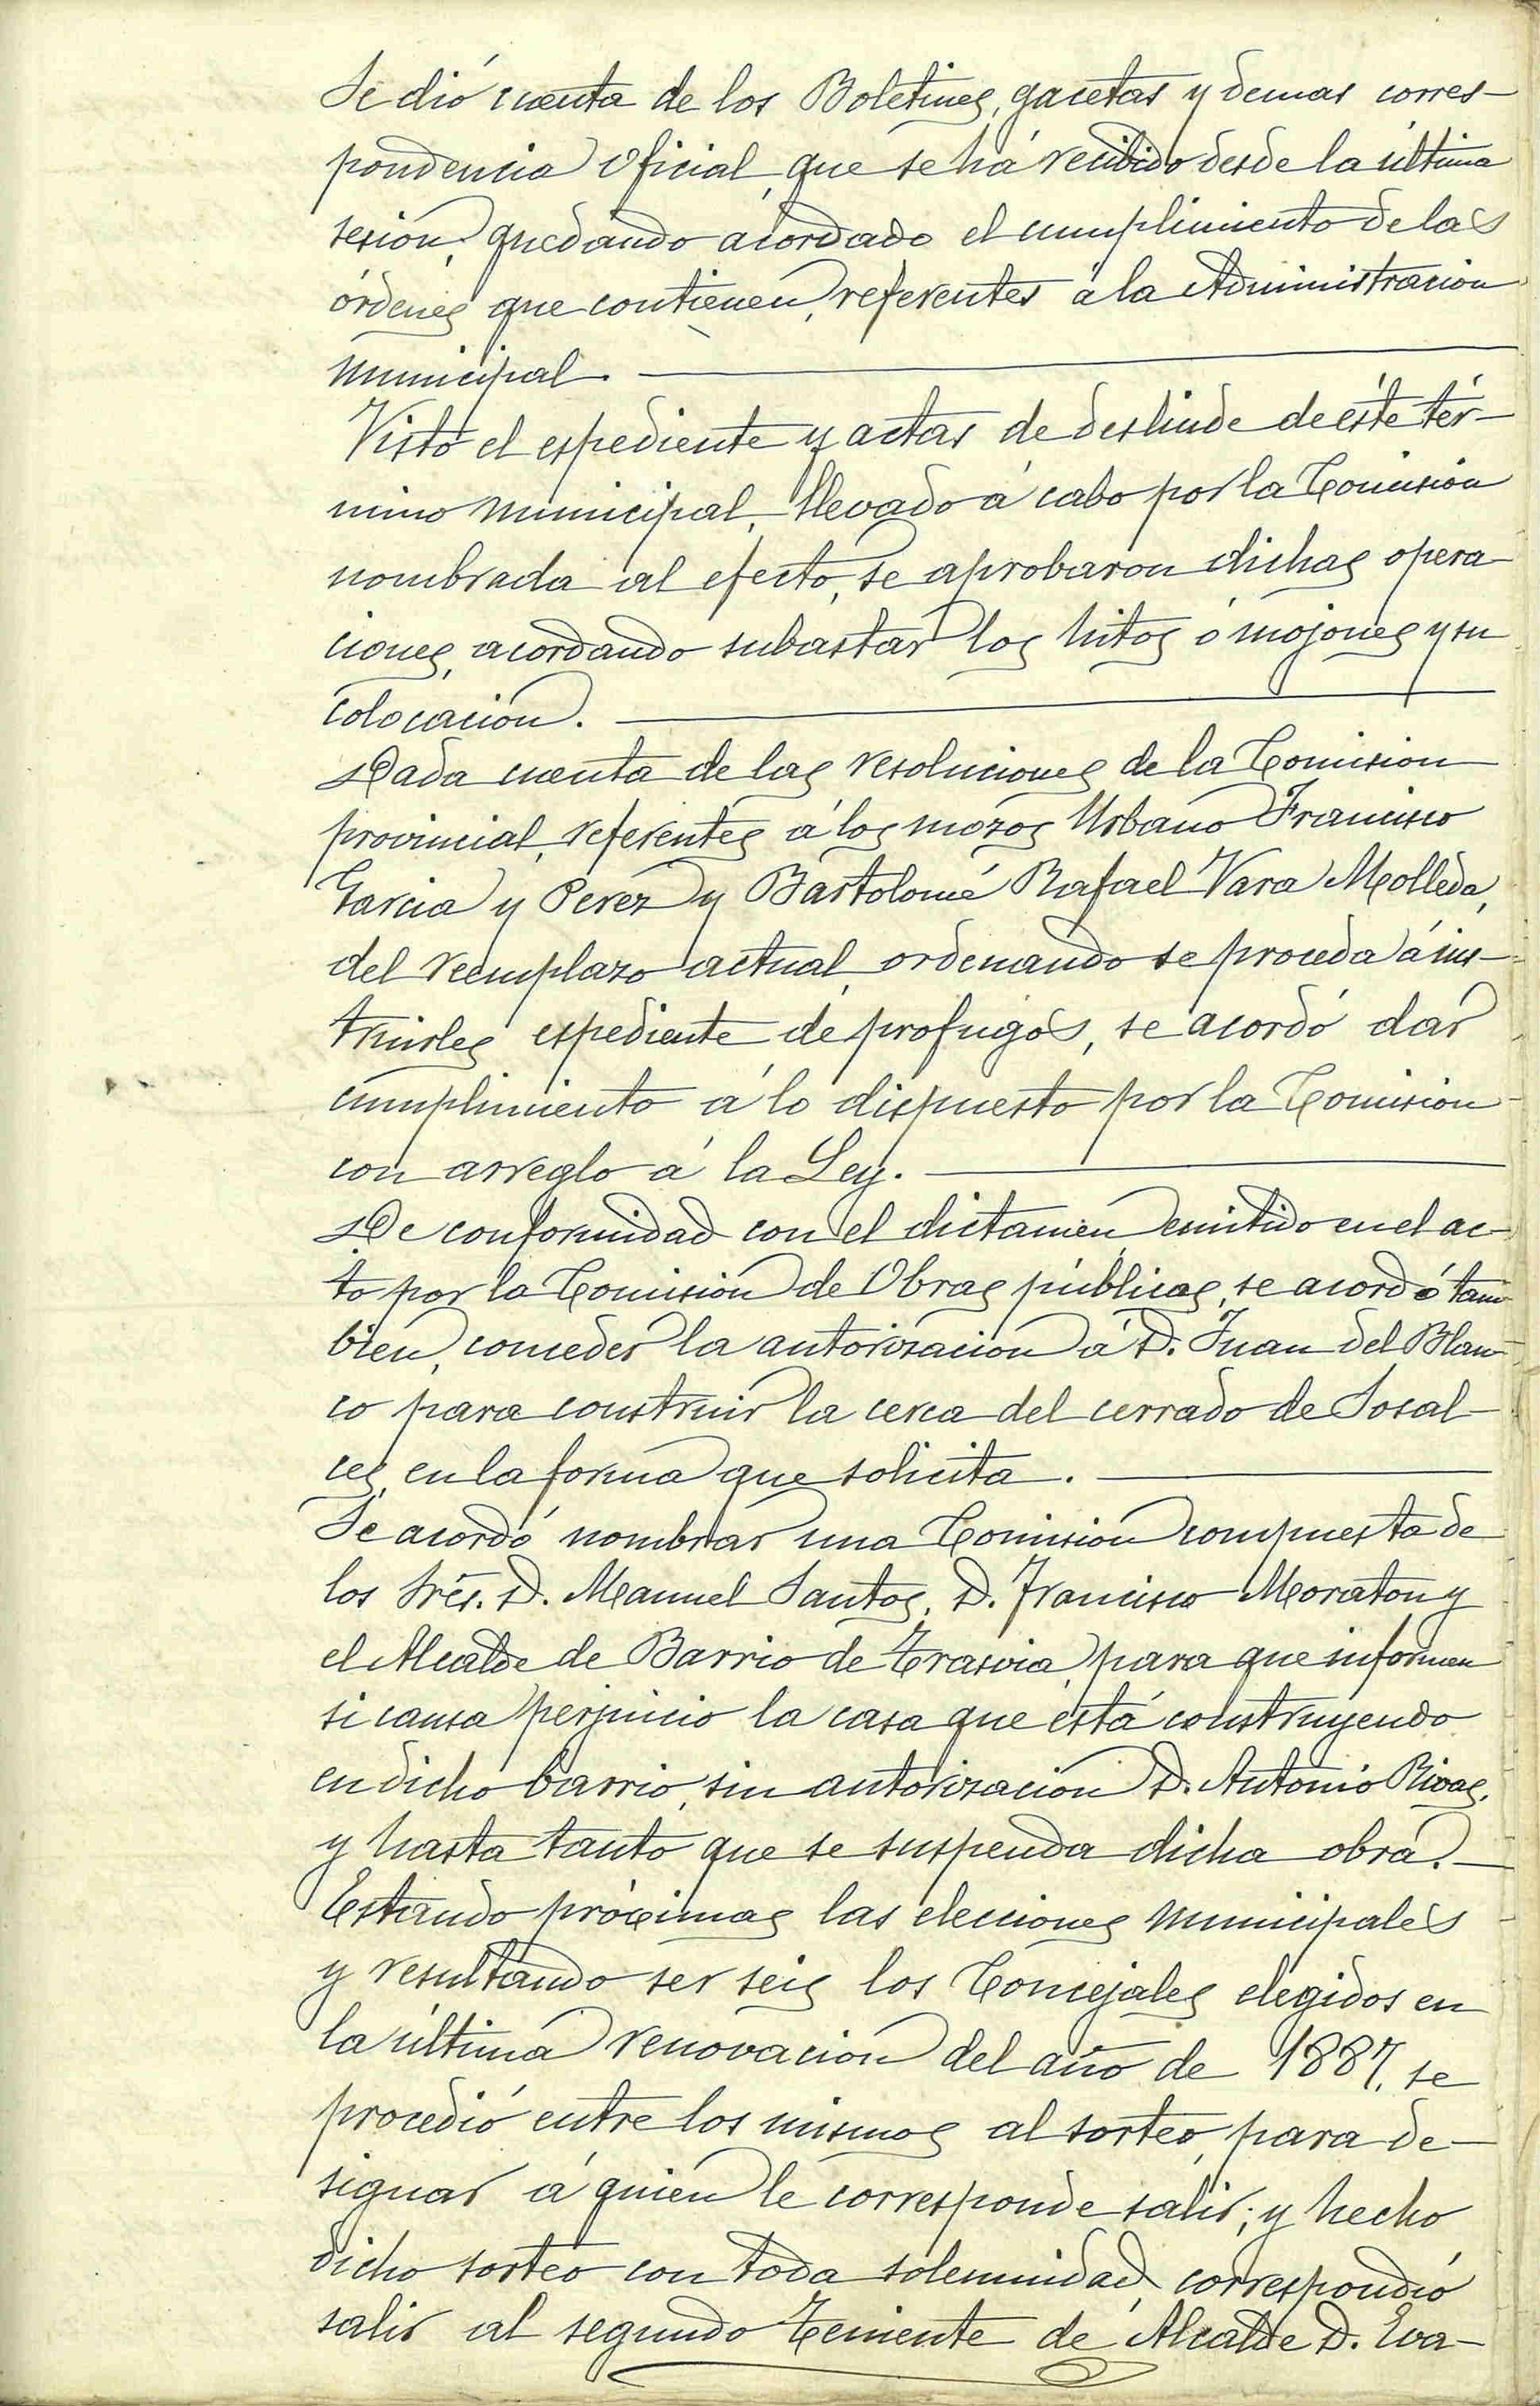 Se dió cuenta de los Boletines, gacetas y demas corres-
pondencia Oficial, que se há recibido desde la última
sesion, quedando acordado el cumplimiento de las
órdenes que contienen, referentes á la Administracion
municipal.
Visto el espediente y actas de deslinde de éste tér-
mino municipal, llevado á cabo por la Comision
nombrada al efecto, se aprobaron dichas opera-
ciones, acordando subastar los hitos ó mojones y su
colocacion.
Dada cuenta de las resoluciones de la Comision
provincial, referentes á los mozos Urbano Francisco
Garcia y Perez y Bartolomé Rafael Vara Molleda,
del reemplazo actual, ordenando se proceda á ins-
truirles espediente de profugos, se acordó dar
cumplimiento á lo dispuesto por la Comision
con arreglo á la Ley.
De conformidad con el dictamen emitido en el ac-
to por la Comision de Obras públicas, se acordó tam-
bien, conceder la autorizacion á D. Juan del Blan-
co para construir la cerca del cerrado de Sosal-
ces, en la forma que solicita.
Se acordó nombrar una Comision compuesta de
los Sres. D. Manuel Santos, D. Francisco Moraton y
el Alcalde de Barrio de Trasvia, para que informen
si causa perjuicio la casa que está construyendo
en dicho barrio, sin autorizacion D. Antonio Rivas,
y hasta tanto que se suspenda dicha obra.
Estando próximas las elecciones municipales
y resultando ser seis los Concejales elegidos en
la última renovacion del año de 1887, se
procedió entre los mismos al sorteo, para de-
signar á quien le corresponde salir; y hecho
dicho sorteo con toda solemnidad, correspondió
salir al segundo Teniente de Alcalde D. Eva-